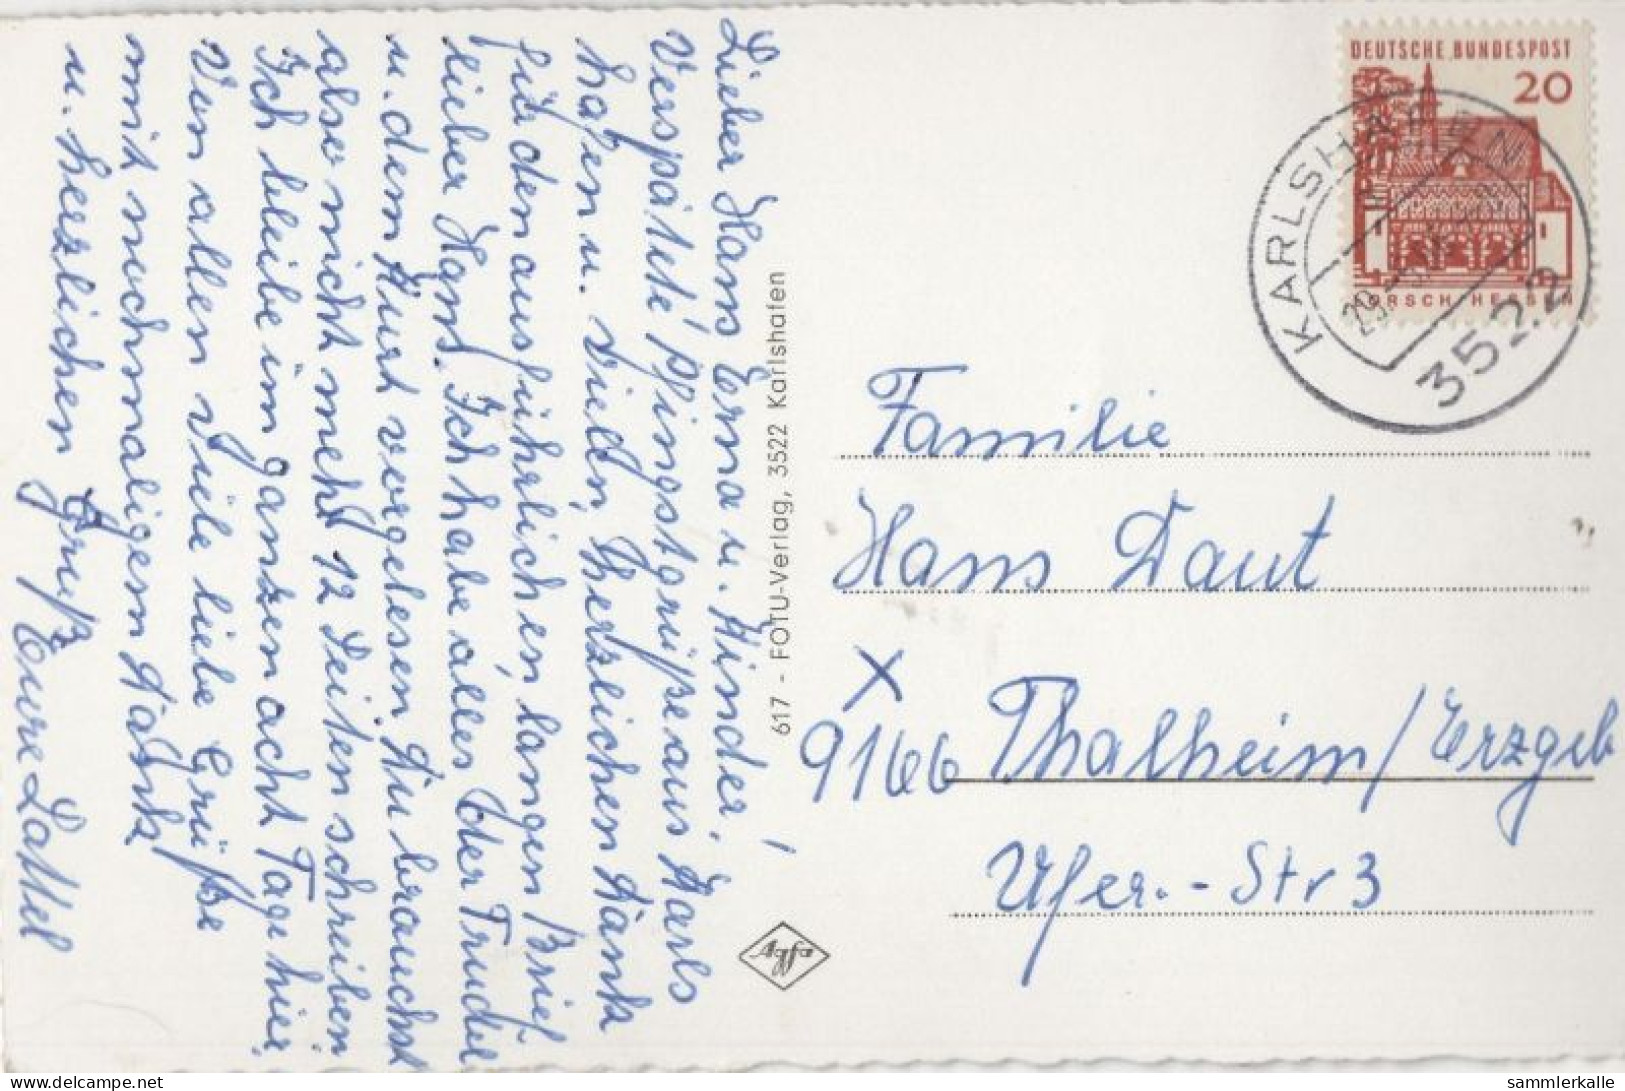 Lieber Hans Erna u. Kinder,
Verspätete Pfingstgrüße aus Karls
hafen u. vielen, herzlichen Dank
für den ausführlichen, langen Brief
lieber Hans. Ich habe alles der Trudel
u. dem Kurt vorgelesen. Du brauchst
also nicht mehr 12 Seiten schreiben.
Ich bleibe im ganzen acht Tage hier.
Von allen viele liebe Grüße
mit nochmaligem Dank
u. herzlichen Gruß
Eure
617 - FOTU-Verlag, 3522 Karlshafen
Agfa
DEUTSCHE BUNDESPOST
20
LORSCH/HESSEN
KARLSHAFEN
3522
Familie
Hans Daut
x
9166 Thalheim/Erzgeb
Ufer.-Str 3
sammlerkalle